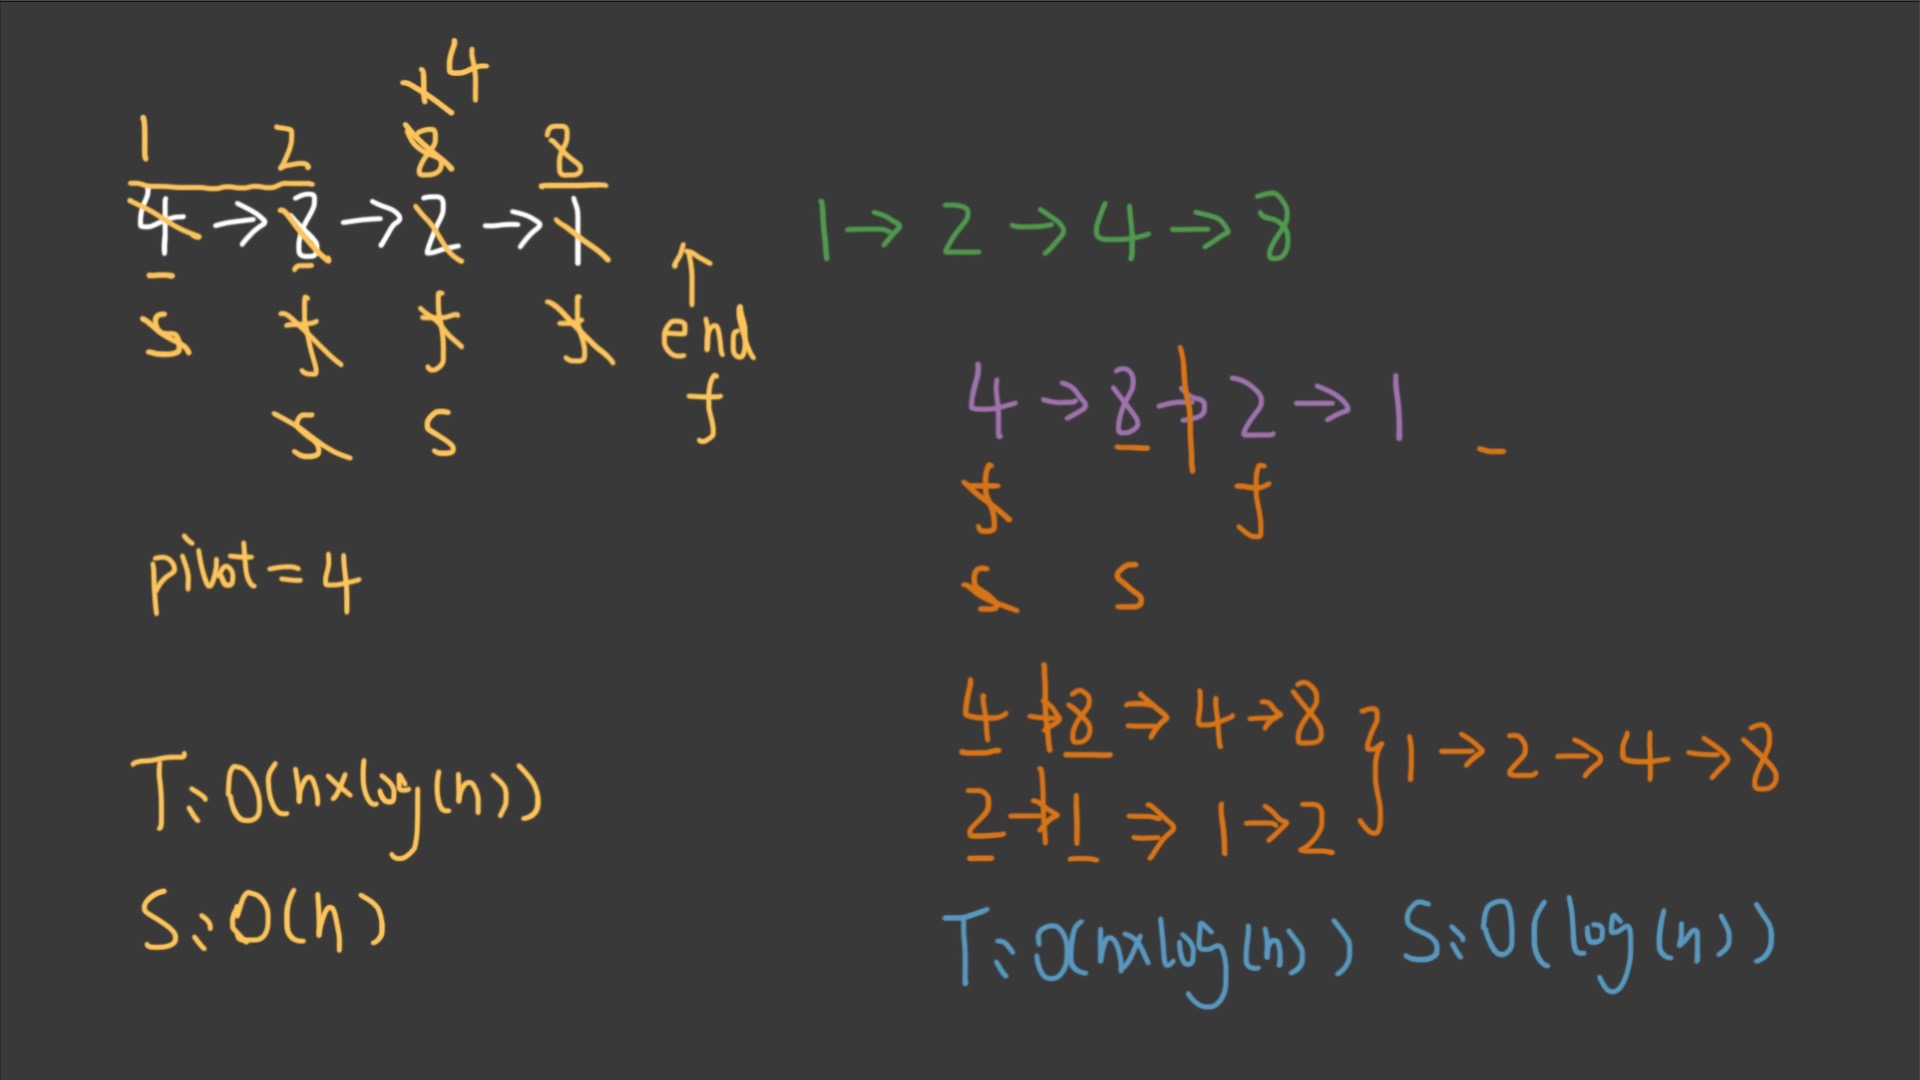 1 4
1 2 8 8
4 → 8 → 2 → 1
s f f f end
s s f
pivot = 4
T: O(n×log(n))
S: O(n)
1 → 2 → 4 → 8
4 → 8 → 2 → 1
f f
s s
4 → 8 ⇒ 4 → 8
2 → 1 ⇒ 1 → 2
} 1 → 2 → 4 → 8
T: O(n×log(n)) S: O(log(n))